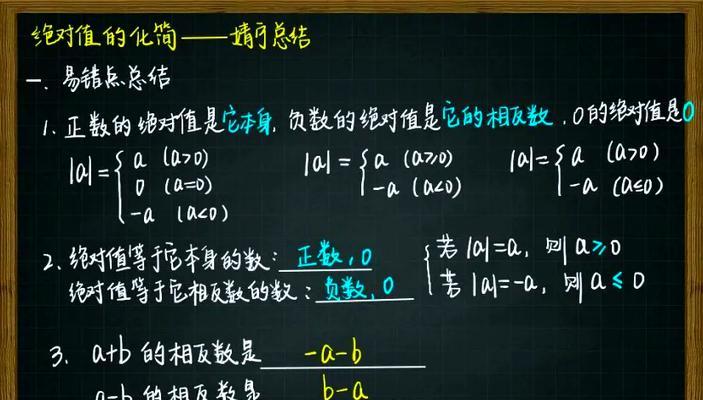 绝对值的化简——婧宁总结
一、易错点总结
1. 正数的绝对值是它本身，负数的绝对值是它的相反数，0的绝对值是0
|a|={ a (a>0)
0 (a=0)
-a (a<0)
|a|={ a (a≥0)
-a (a<0)
|a|={ a (a>0)
-a (a≤0)
2. 绝对值等于它本身的数：正数，0
绝对值等于它相反数的数：负数，0
{ 若 |a|=a，则 a≥0
若 |a|=-a，则 a≤0
3. a+b 的相反数是 -a-b
a-b 的相反数是 b-a